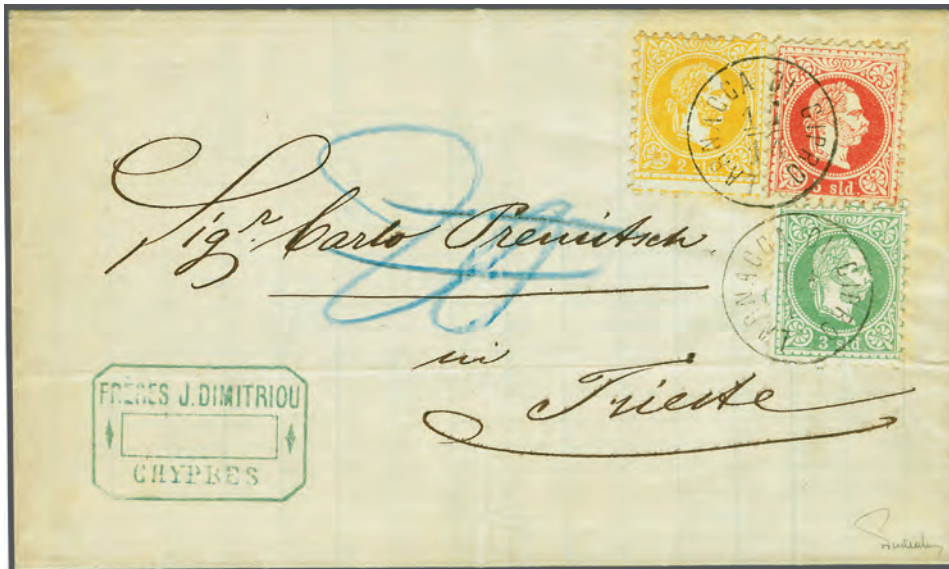 2 sld.
5 sld.
LARNACCA DI CIPRO
3 sld.
LARNACCA DI CIPRO
Sigr. Carlo Premitsch
in
Trieste
FRÈRES J. DIMITRIOU
CHYPRES